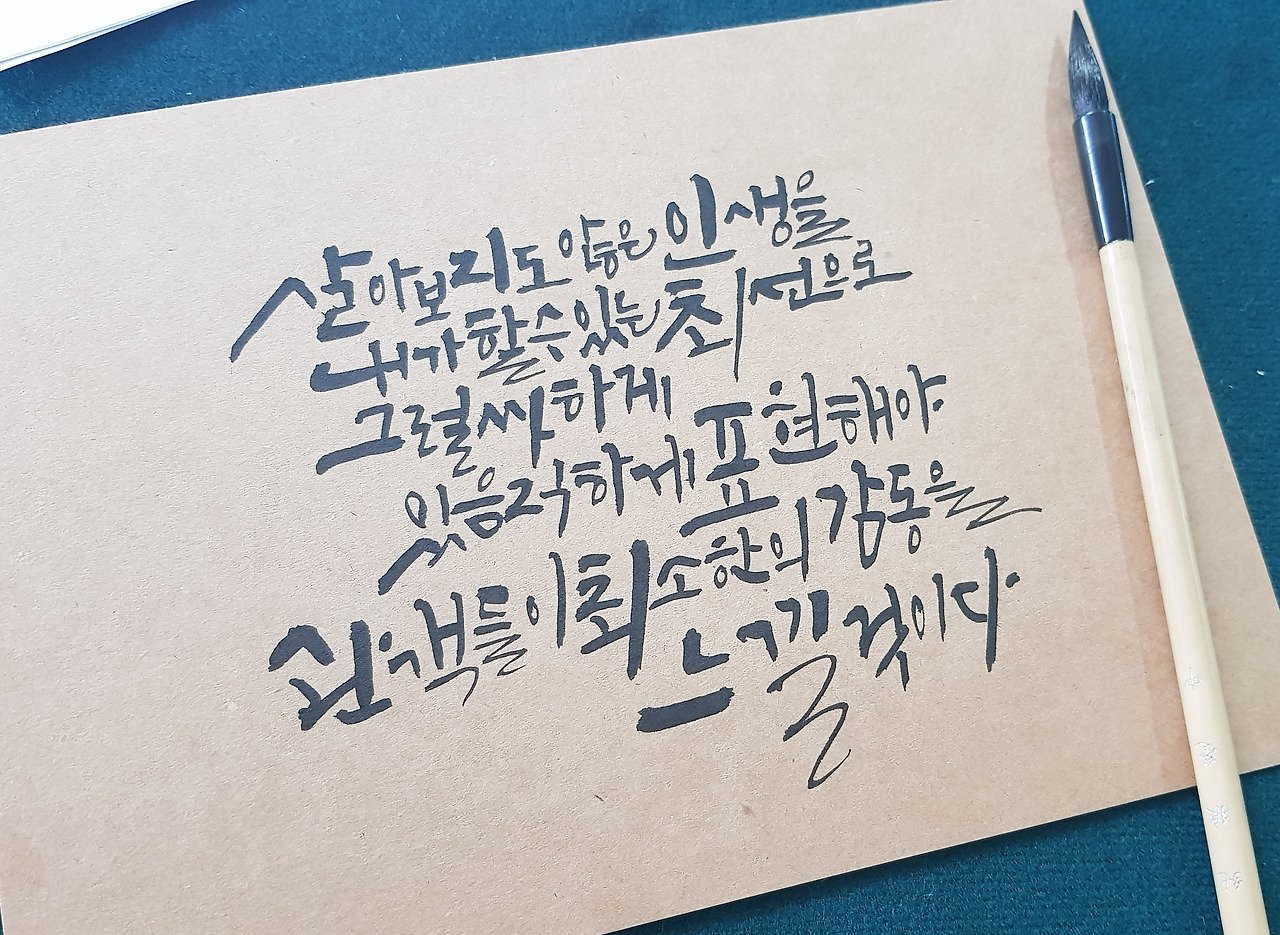 살아보지도 않은 인생을
내가 할 수 있는 최선으로
그럴싸하게
있음직하게 표현해야
관객들이 최소한의 감동을
느낄 것이다.